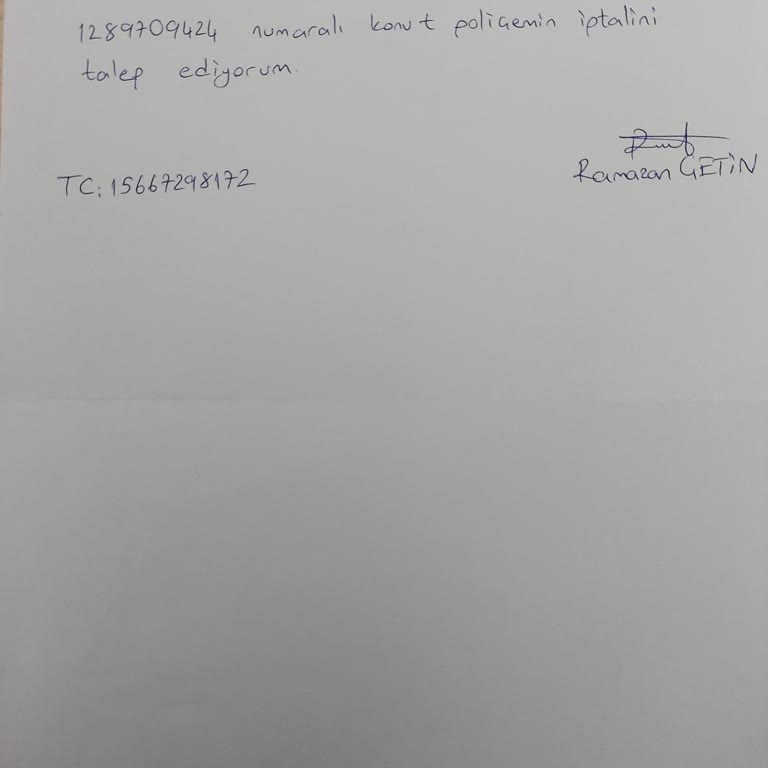 1289709424 numaralı konut poliçemin iptalini
talep ediyorum.
TC: 15667298172
Ramazan ÇETİN